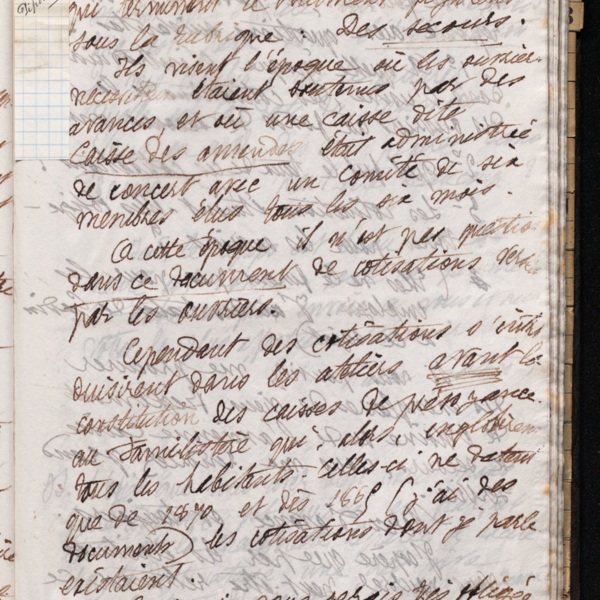 qui terminent le
sous la rubrique : Des secours.
Ils visent l'époque où les ouvriers
nécessiteux étaient soutenus par des
avances, et où une caisse dite
Caisse des amendes était administrée
de concert avec un comité de six
membres élus tous les six mois.
A cette époque il n'est pas question
dans ce document de cotisations versées
par les ouvriers.
Cependant des cotisations s'intro
duisirent dans les ateliers avant la
constitution des caisses de prévoyance
au Familistère qui, alors, englobèrent
tous les habitants. Celles-ci ne datent
que de 1870 et dès 1865 (j'ai des
documents) les cotisations dont je parle
existaient.